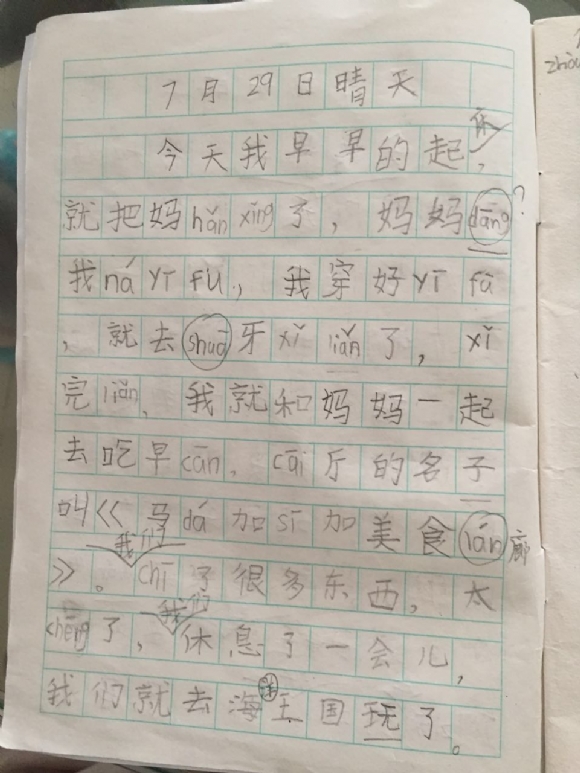 7月29日晴天
今天我早早的起床,
就把妈hǎn xǐng了,妈妈dāng?
我ná yī fu,我穿好yī fū
,就去shuā牙xǐ liǎn了,xǐ
完liǎn、我就和妈妈一起
去吃早cān.cāi厅的名子
叫《马dá加sī加美食lán廊
》。我们chī了很多东西,太
chēng了,我们休息了一会儿,
我们就去海洋王国玩了。
zhòu